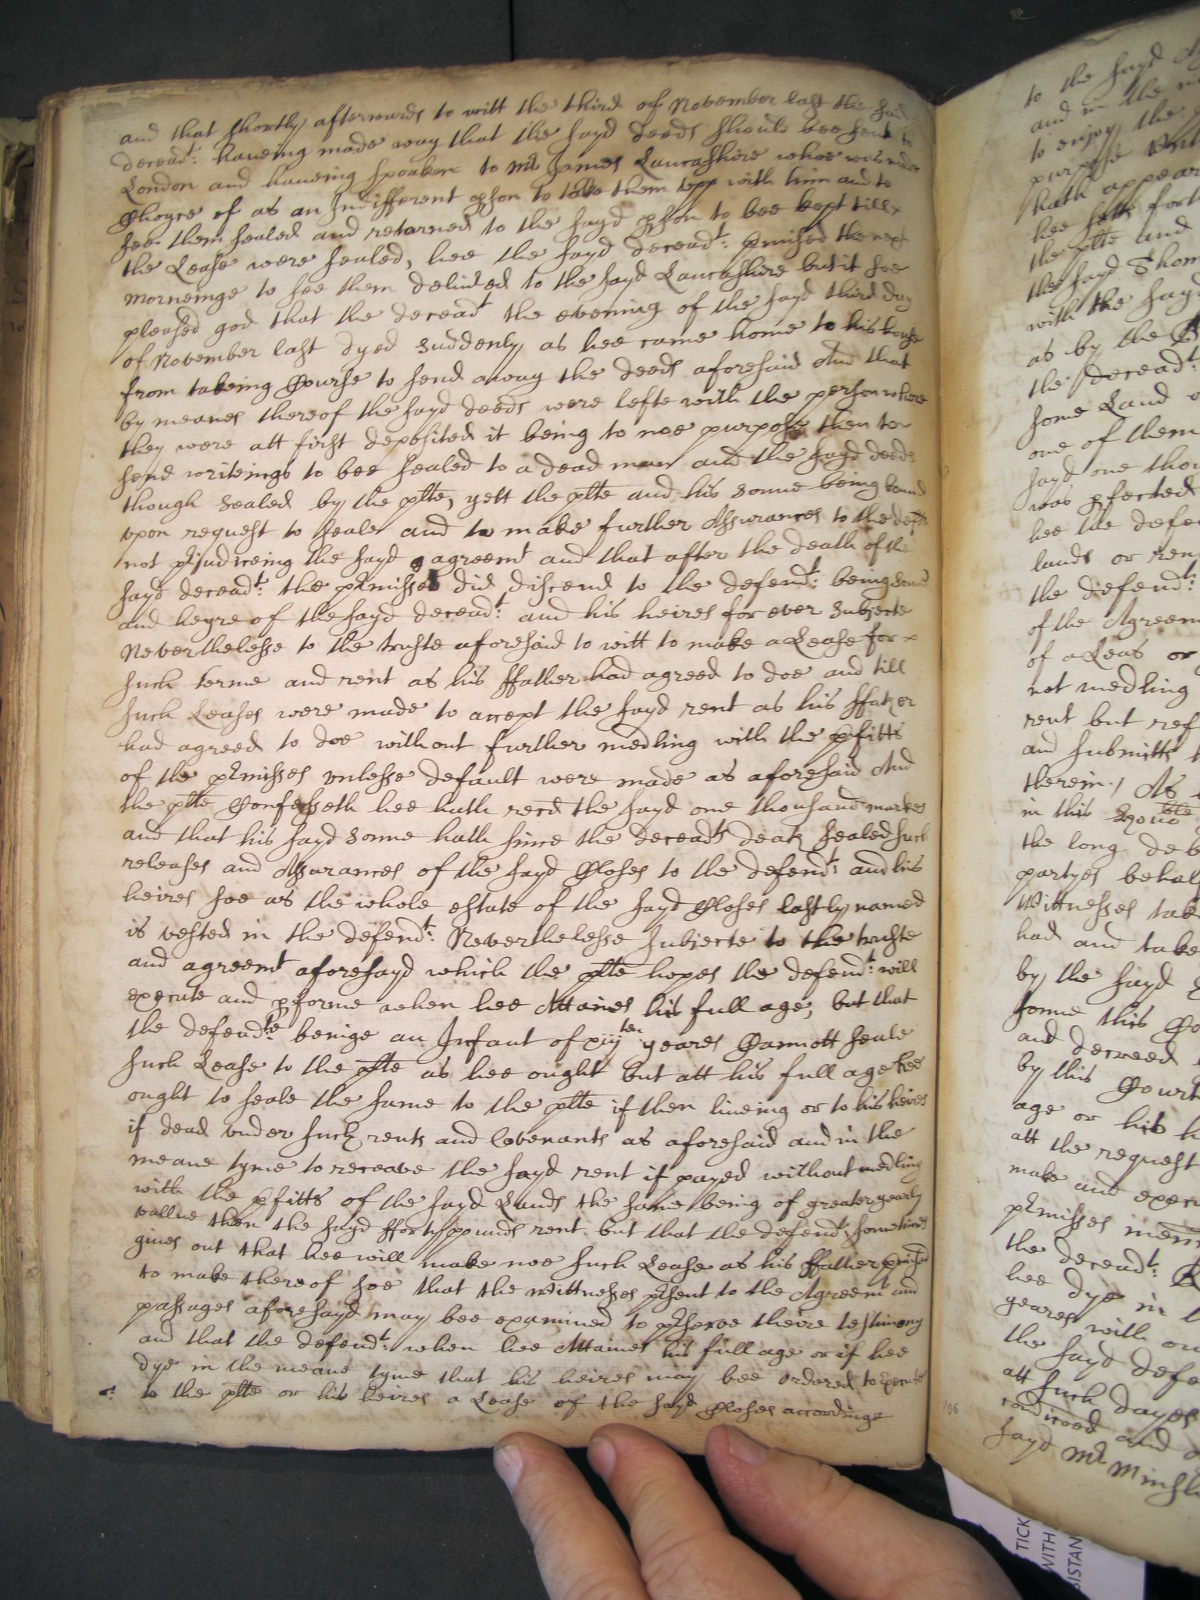 and that shortly afterwards to witt the third of November last the said
deceadt: haueing made way that the sayd deeds should bee sent to
London and haueing spoaken to Mr James Lancashire whoe was made
Choyce of as an Indifferent pson to take them upp with him and to
see them sealed and returned to the sayd pson to bee kept till
the Lease were sealed, hee the sayd deceadt: pmised the next
morneinge to see them deliuled to the sayd Lancashire but it soe
pleased god that the deceadt the evening of the sayd third day
of November last dyed suddenly as hee came home to his house
from takeing Course to send away the deeds aforesaid And that
by meanes thereof the sayd deeds were lefte with the person where
they were att first deposited it being to noe purpose then to
send writeings to bee sealed to a dead man and the sayd deeds
though sealed by the plte, yett the plte and his sonne being bound
vpon request to seale and to make further Assurances to the defts
not piudiceing the sayd agreemt and that after the death of the
sayd deceadt: the pmisses did discend to the defendt: being sonne
and heyre of the sayd deceadt: and his heires for ever Subjecte
Neverthelesse to the truste aforesaid to witt to make a Lease for
such terme and rent as his ffather had agreed to doe and till
such Leases were made to accept the sayd rent as his ffather
had agreed to doe without further medling with the pfitts
of the pmisses vnlesse default were made as aforesaid And
the plte Confesseth hee hath recd the sayd one thousand markes
and that his sayd sonne hath since the deceadts death sealed such
releases and Assurances of the sayd Closes to the defendt: and his
heires soe as the whole estate of the sayd Closes lastly named
is vested in the defendt: Neverthelesse subjecte to the truste
and agreemt aforesayd which the plte hopes the defendt: will
execute and pforme when hee Attaines his full age, but that
the defendte beinge an Infant of xiijten yeares Cannott seale
such Lease to the plte as hee ought but att his full age hee
ought to seale the same to the plte if then liueing or to his heires
if dead vnder such rents and Covenants as aforesaid and in the
meane tyme to receave the sayd rent if payed without medling
with the pfitts of the sayd Lands the same being of greater yearly
vallue then the sayd fforty pounds rent but that the defendt: sometimes
giues out that hee will make noe such Lease as his ffather pmised
to make thereof soe that the Wittnesses psent to the Agreemt and
passages aforesayd may bee examined to pserve theire testimony
and that the defendt: when hee Attaines his full age or if hee
dye in the meane tyme that his heires may bee ordered to execute
to the plte or his heires a Lease of the sayd Closes accordinge
to the sayd
and in the
to enjoy the
purpose
hath appear
hee setts forth
the plte and
the sayd Thom
with the sayd
as by the
the deceadt:
some Land
one of them
sayd one thou
was pfected
hee the defen
lands or ren
the defendt:
of the Agreem
of a Leas or
not medling
rent but ref
and submitts
therein / As
in this
the long deb
partyes behal
Wittnesses tak
had and take
by the sayd
sonne this Co
and decreed
by this Court
age or his h
att the request
make and execu
pmisses
the deceadt:
hee dye in
yeares with
the sayd defe
att such dayes
condiconed and
sayd Mr Minsh
196
TICK
WITH
DISTAN